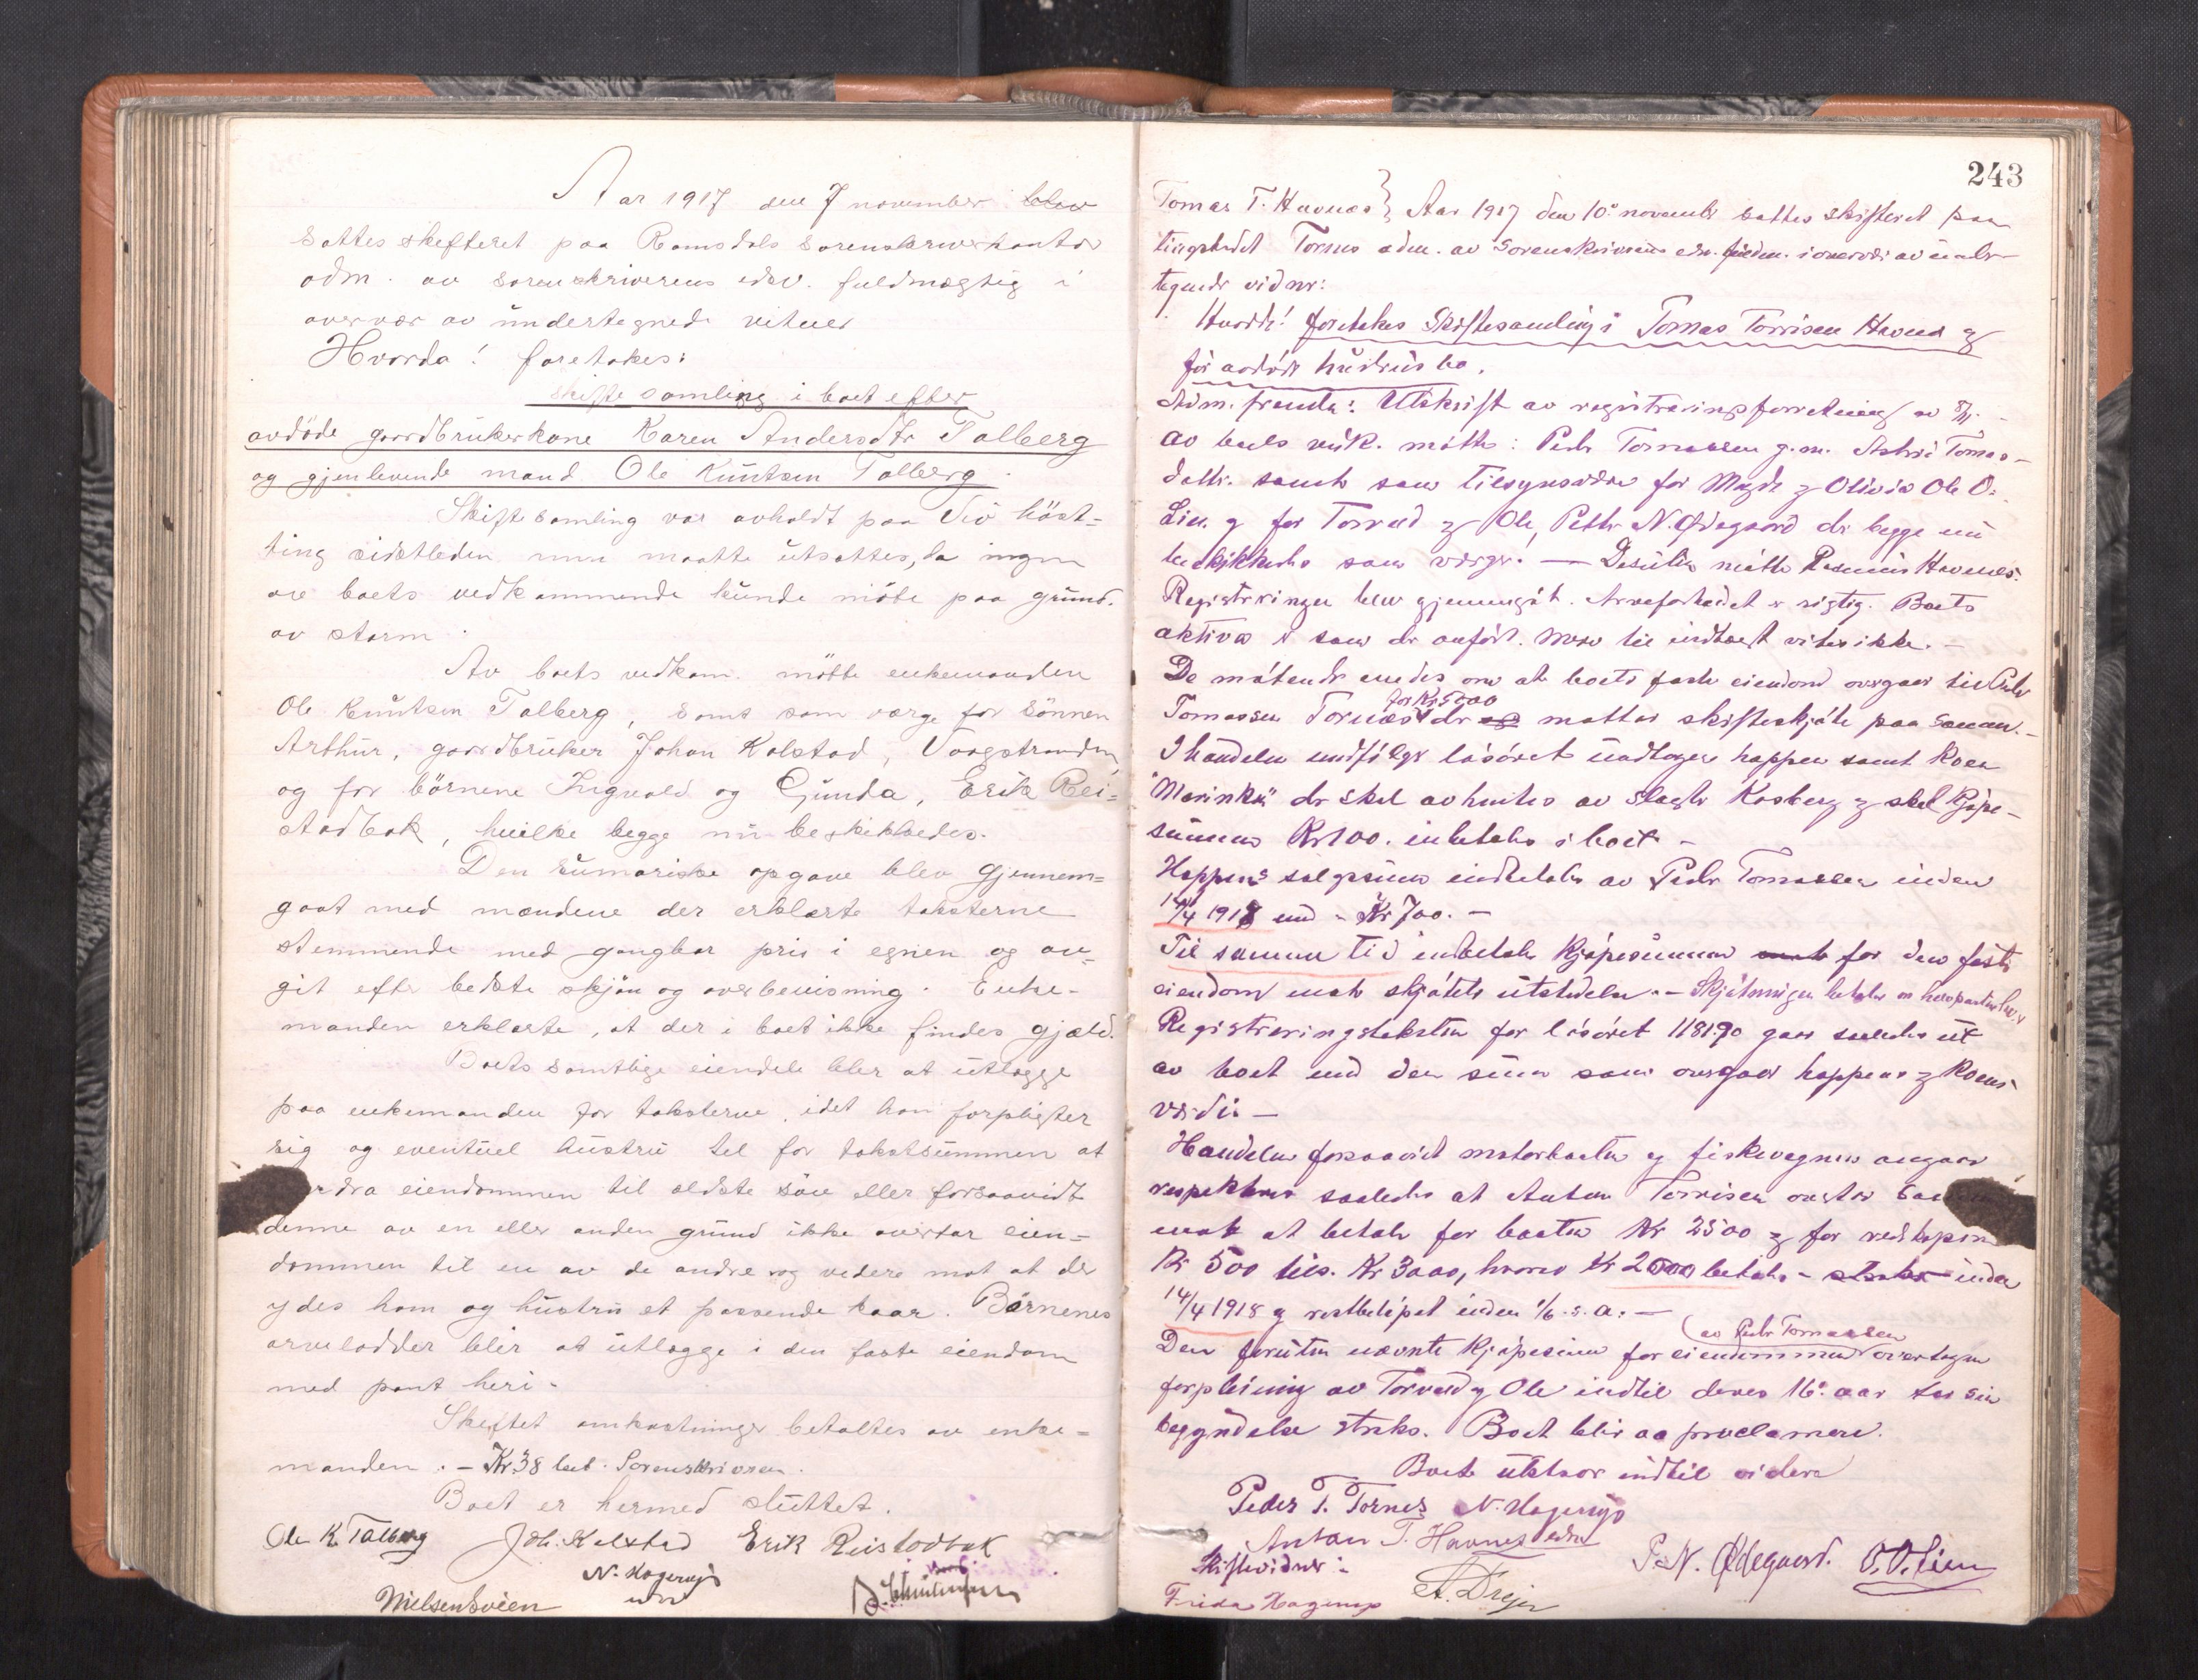 Aar 1917 den 7 november blev
sattes skifteret paa Romsdals sorenskriverkontor
adm. av sorenskriverens edsv. fuldmægtig i
overvær av undertegnede vitner
Hvorda! foretokes:
skiftesamling i boet efter
avdöde gaardbrukerkone Karen Andersdtr Talberg
og gjenlevende mand Ole Knutsen Talberg.
Skiftesamling var avholdt paa Veö höst-
ting sidstleden men maatte utsættes, da ingen
av boets vedkommende kunde möte paa grund.
av storm.
Av boets vedkom. mötte enkemanden
Ole Knutsen Talberg, samt som værge for sönnen
Arthur, gaardbruker Johan Kolstad, Vaagstranden,
og for börnene Ingvald og Gunda, Erik Rei-
stadbak, hvilke begge nu beskikkedes.
Den sumariske opgave blev gjennem-
gaat med mændene der erklærte taksterne
stemmende med gangbar pris i egnen og av-
git efter bedste skjön og overbevisning. Enke-
manden erklærte, at der i boet ikke findes gjæld.
Boets samtlige eiendele blev at utlægge
paa enkemanden for taksterne, idet han forpligter
sig og eventuel hustru til for takstsummen at
eiendommen til ældste sön eller forsaavidt
denne av en eller anden grund ikke overtar eien-
dommen til en av de andre og videre mot at der
ydes ham og hustru et passende kaar. Börnenes
arvelodder blir at utlægge i den faste eiendom
med pant heri.
Skiftet omkostninger betaltes av enke-
manden. - Kr 38 bet. Sorenskriveren.
Boet er hermed sluttet.
Ole K. Talberg Joh. Kolstad Erik Reistadbak
N. Hagerup
Nielsen Sveen edsv

243
Tomas T. Havnes } Aar 1917 den 10de novembr sattes skifteret paa
tingstedet Tornes adm. av sorenskriverens edsv. fuldm. i overvær av under-
tegnede vidner:
Hvorda! foretokes Skiftesamling i Tomas Torrisen Havnes og
för avdöde hustrus bo.
Adm. fremla: Utskrift av registreringsforretning av
av boets vedk. mötte: Peder Tomassen g.m. Tomas-
datter samt som tilsynsværge for Magda og Olivia Ole O.
Lien og for Torvald og Ole, Petter N. Ödegaard der begge nu
beskikkedes som værger. — Desuten mötte Rasmus Havnes.
Registreringen blev gjennemgaat. Arveforholdet er rigtig. Boets
aktiva er som der anfört. Mere til indtægt vites ikke. -
De mötende enedes om at boets faste eiendom overgaar til Peder
Tomassen Tornæs for Kr 5000 der mottar skifteskjöte paa samme. -
I handelen medfölger lösöret undtagen hoppen samt koen
"Marinka" der skal avhentes av slagter Kosberg og skal kjöpe-
summen Kr 100. inbetales i boet -
Hoppens salgssum indbetales av Peder Tomassen inden
14/4 1918 med Kr 700. -
Til samme tid inbetales kjöpesummen for den faste
eiendom mot skjötets utstedelse. -
Registreringstaksten for lösöret 1181.90 gaar saaledes ut
av boet med den sum som overgaar hoppens og koens
værdi -
Handelen forsaavidt motorbaaten og fiskevegnen angaar
respekteres saaledes at Anton Torrisen overtar
mot at betale for baaten Kr 2500 og for redskapene
Kr 500 tils. Kr 3000, hvorav Kr 2000 betales - straks inden
14/4 1918 og restbelöpet inden 1/6 s.a. -
Den foruten nævnte kjöpesum for eiendommen (av Peder Tomassen overtagne
forpleining av Torvald og Ole indtil deres 16de aar tar sin
begyndelse straks. Boet blir at proclamere.
Boet utstaar indtil videre
Peder T. Tornes N. Hagerup
Anton T. Havnes edsv
Skiftevidner: P. N. Ödegaard. O. O. Lien
Frida Hagerup A. Dreyer